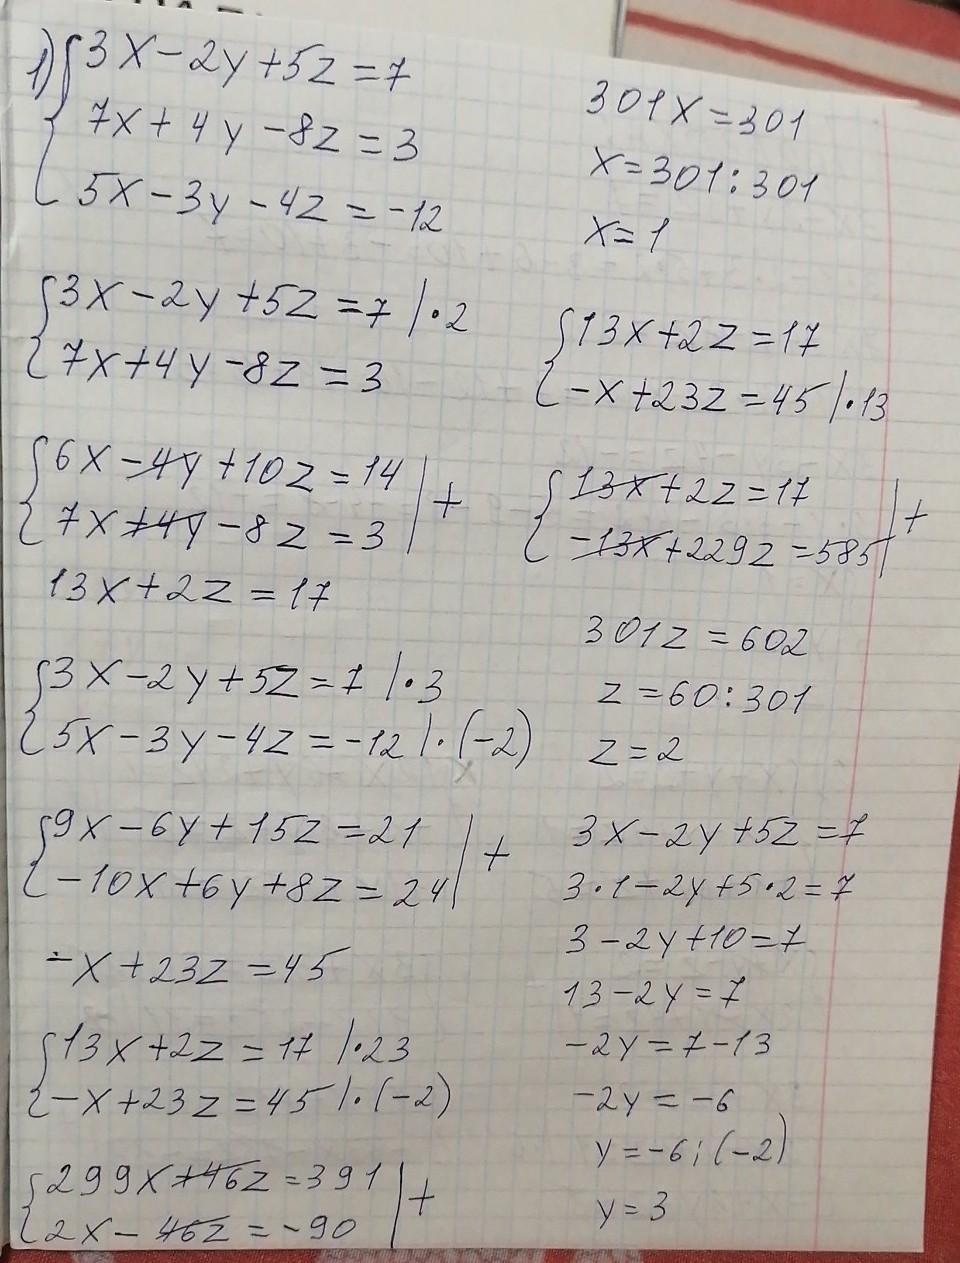 1) 3x-2y+5z=7
7x+4y-8z=3
5x-3y-4z=-12
3x-2y+5z=7 |·2
7x+4y-8z=3
6x-4y+10z=14 | +
7x+4y-8z=3
13x+2z=17
3x-2y+5z=7 |·3
5x-3y-4z=-12 |·(-2)
9x-6y+15z=21 | +
-10x+6y+8z=24
-x+23z=45
13x+2z=17 |·23
-x+23z=45 |·(-2)
299x+46z=391 | +
2x-46z=-90
301x=301
x=301:301
x=1
13x+2z=17
-x+23z=45 |·13
13x+2z=17 | +
-13x+229z=585
301z=602
z=60:301
z=2
3x-2y+5z=7
3·1-2y+5·2=7
3-2y+10=7
13-2y=7
-2y=7-13
-2y=-6
y=-6:(-2)
y=3